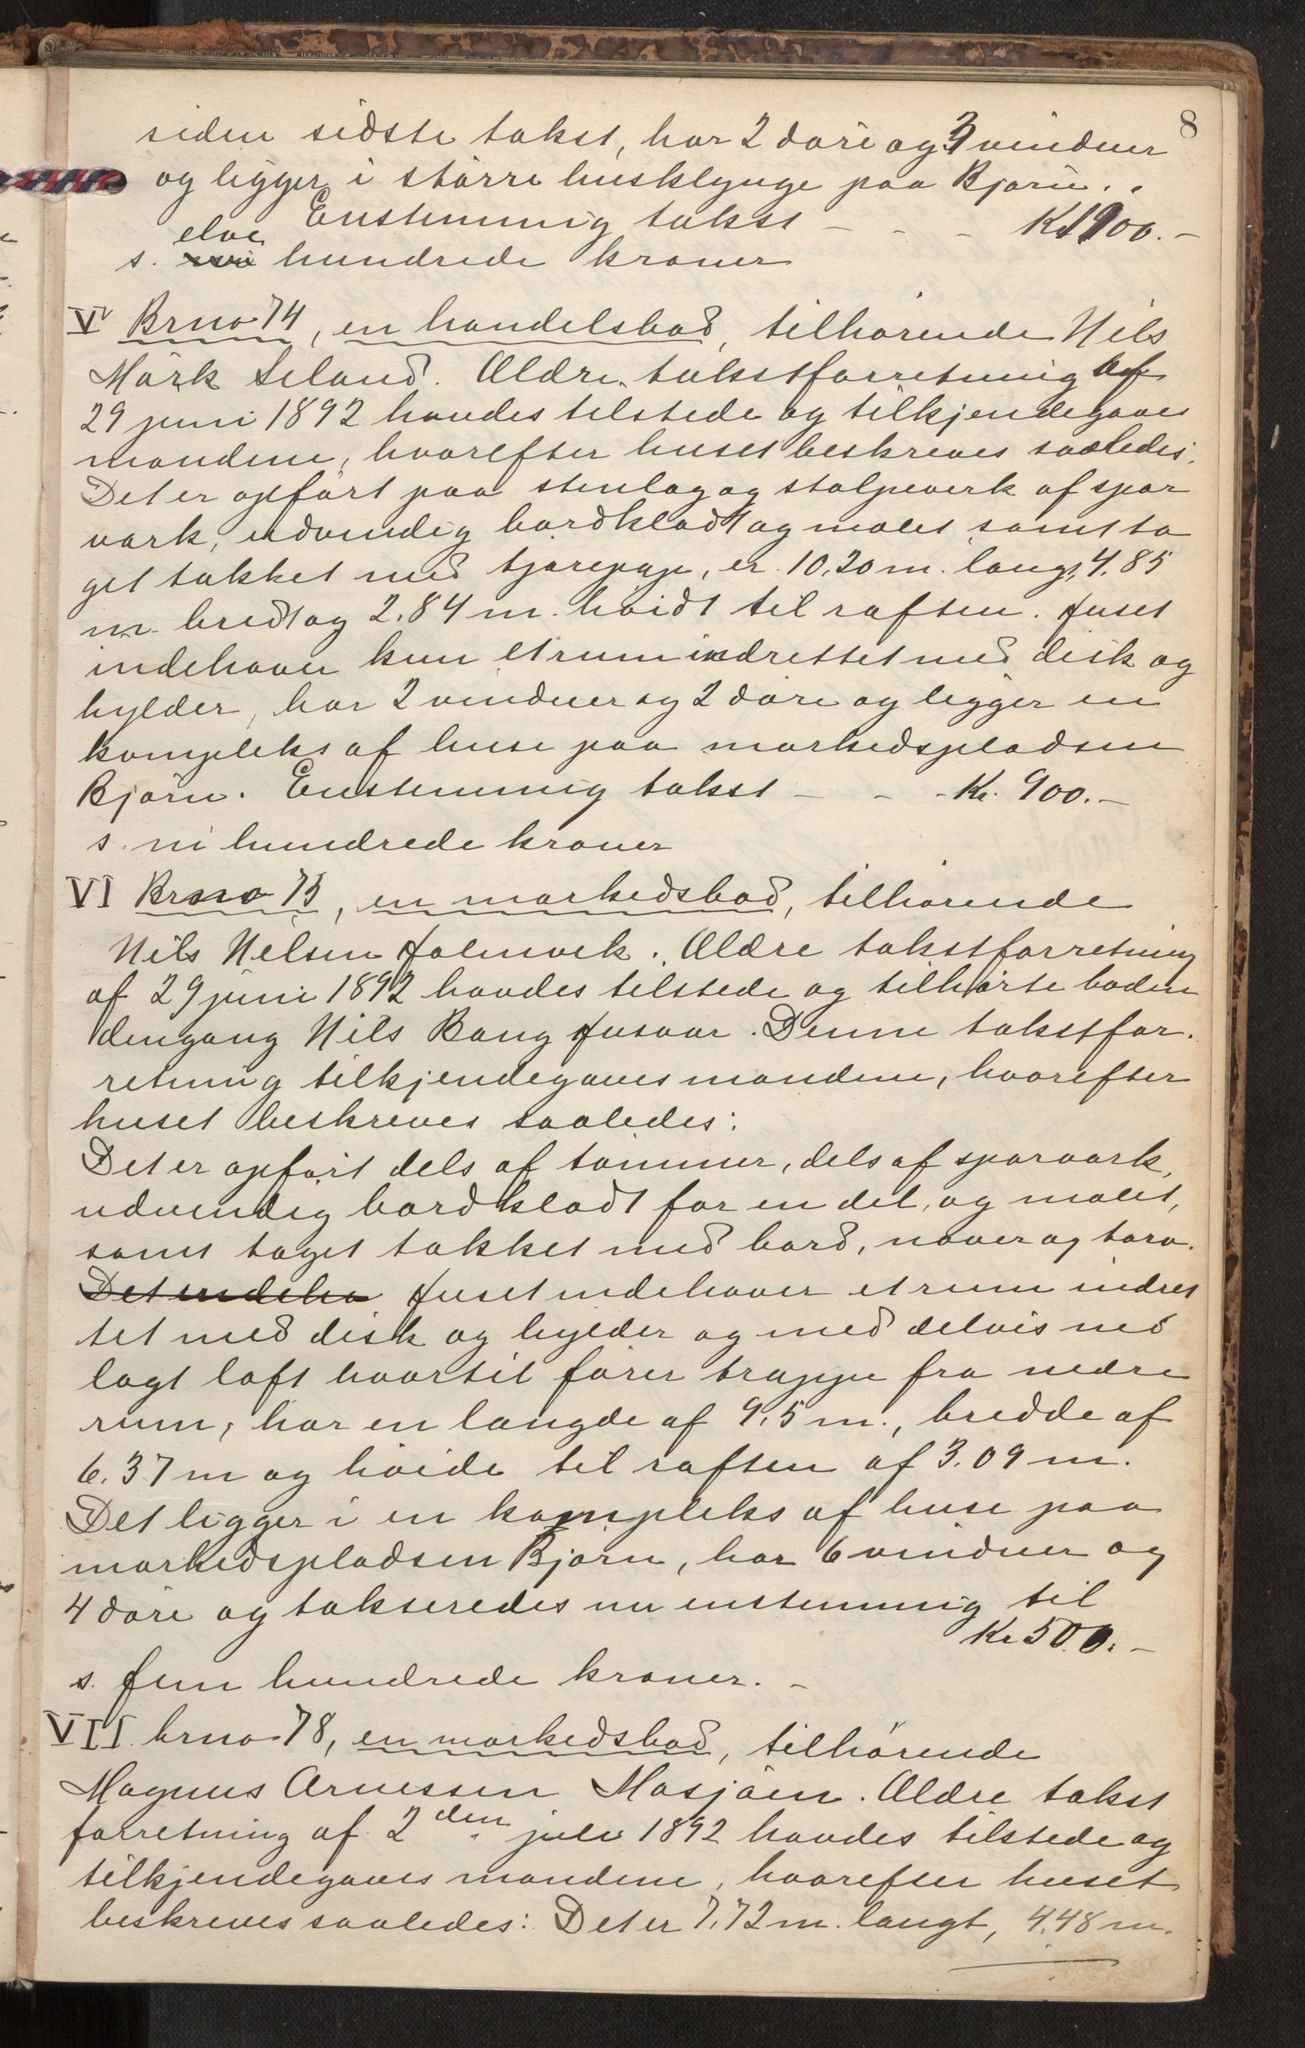 8
siden sidste takst, har 2 døre og 3 vinduer
og ligger i större husklynge paa Bjørn.
Enstemmig takst - - - Kr 1100.-
s. elve hundrede kroner
V Brno 74, en handelsbod, tilhørende Nils
Mörk Leland. Ældre takstforretning af
29 juni 1892 havdes tilstede og tilkjendegaves
mændene, hvorefter huset beskreves saaledes:
Det er opført paa stenlag og stolpeverk af spær
værk, udvendig bordklædt og malet samt ta
get tækket med tjærepap, er 10,20 m. langt, 4.85
m. bredt og 2.84 m. høidt til raften. Huset
indehaver kun et rum indrettet med disk og
hylder, har 2 vinduer og 2 døre og ligger en
kompleks af huse paa markedspladsen
Bjørn. Enstemmig takst - - - Kr. 900.-
s. ni hundrede kroner
VI Brno 75, en markedsbod, tilhørende
Nils Nelsen Holmvik. Ældre takstforretning
af 29 juni 1892 havdes tilstede og tilhørte boden
dengang Nils Bang Husvær. Denne takstfor-
retning tilkjendegaves mændene, hvorefter
huset beskreves saaledes:
Det er opført dels af tømmer, dels af spærværk,
udvendig bordklædt for en del, og malet,
samt taget tækket med bord, næver og torv.
Det indeha Huset indehaver et rum indret
tet med disk og hylder og med delvis ned
lagt loft hvortil fører trappe fra nedre
rum, har en længde af 9,5 m., bredde af
6.37 m og høide til raften af 3.09 m.
Det ligger i en kompleks af huse paa
markedspladsen Bjørn, har 6 vinduer og
4 døre og takseredes nu enstemmig til
Kr 500.-
s. fem hundrede kroner. -
VII brno 78, en markedsbod, tilhørende
Magnus Arnessen Mosjøen. Ældre takst
forretning af 2den juli 1892 havdes tilstede og
tilkjendegaves mændene, hvorefter huset
beskreves saaledes: Det er 7,72 m. langt, 4.48 m.